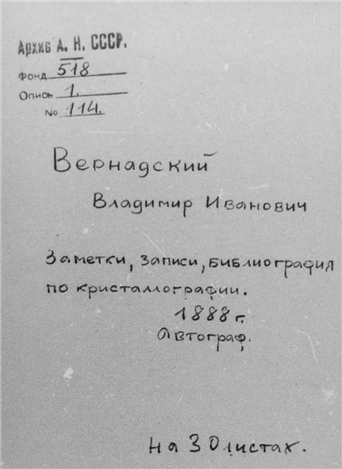 Архив А. Н. СССР.
Фонд 518
Опись 1.
№ 114.
Вернадский
Владимир Иванович
Заметки, записи, библиография
по кристаллографии.
1888 г.
Автограф.
На 30 листах.